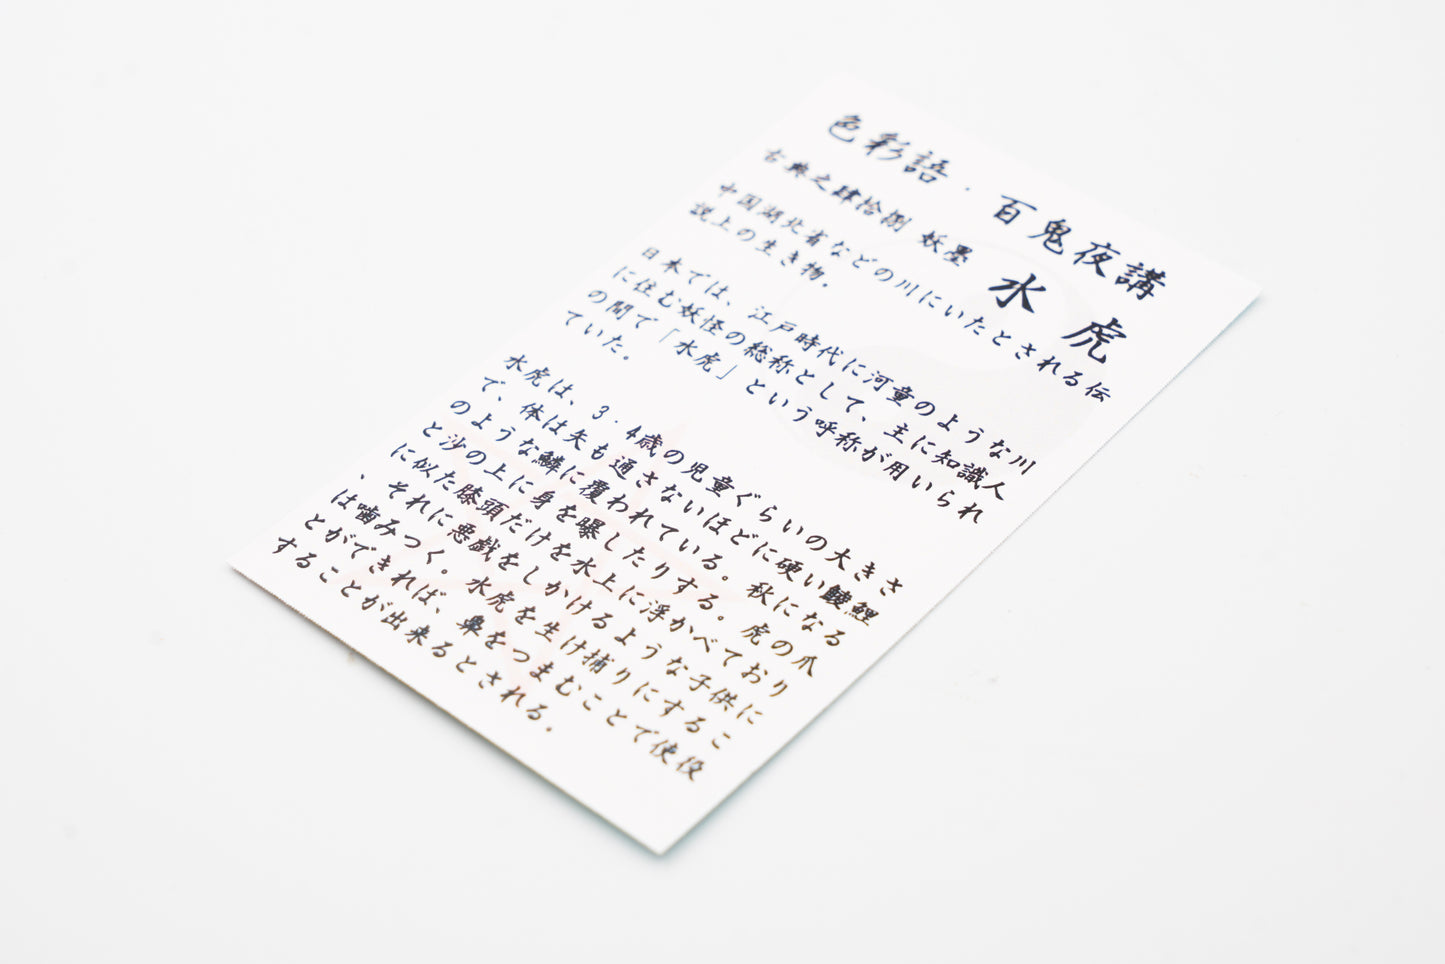 色彩語・百鬼夜講
古典之肆拾捌 妖墨
水虎
中国湖北省などの川にいたとされる伝
説上の生き物。
日本では、江戸時代に河童のような川
に住む妖怪の総称として、主に知識人
の間で「水虎」という呼称が用いられ
ていた。
水虎は、3・4歳の児童ぐらいの大きさ
で、体は矢も通さないほどに硬い鯪鯉
のような鱗に覆われている。秋になる
と沙の上に身を曝したりする。虎の爪
に似た膝頭だけを水上に浮かべており
、それに悪戯をしかけるような子供に
は噛みつく。水虎を生け捕りにするこ
とができれば、鼻をつまむことで使役
することが出来るとされる。